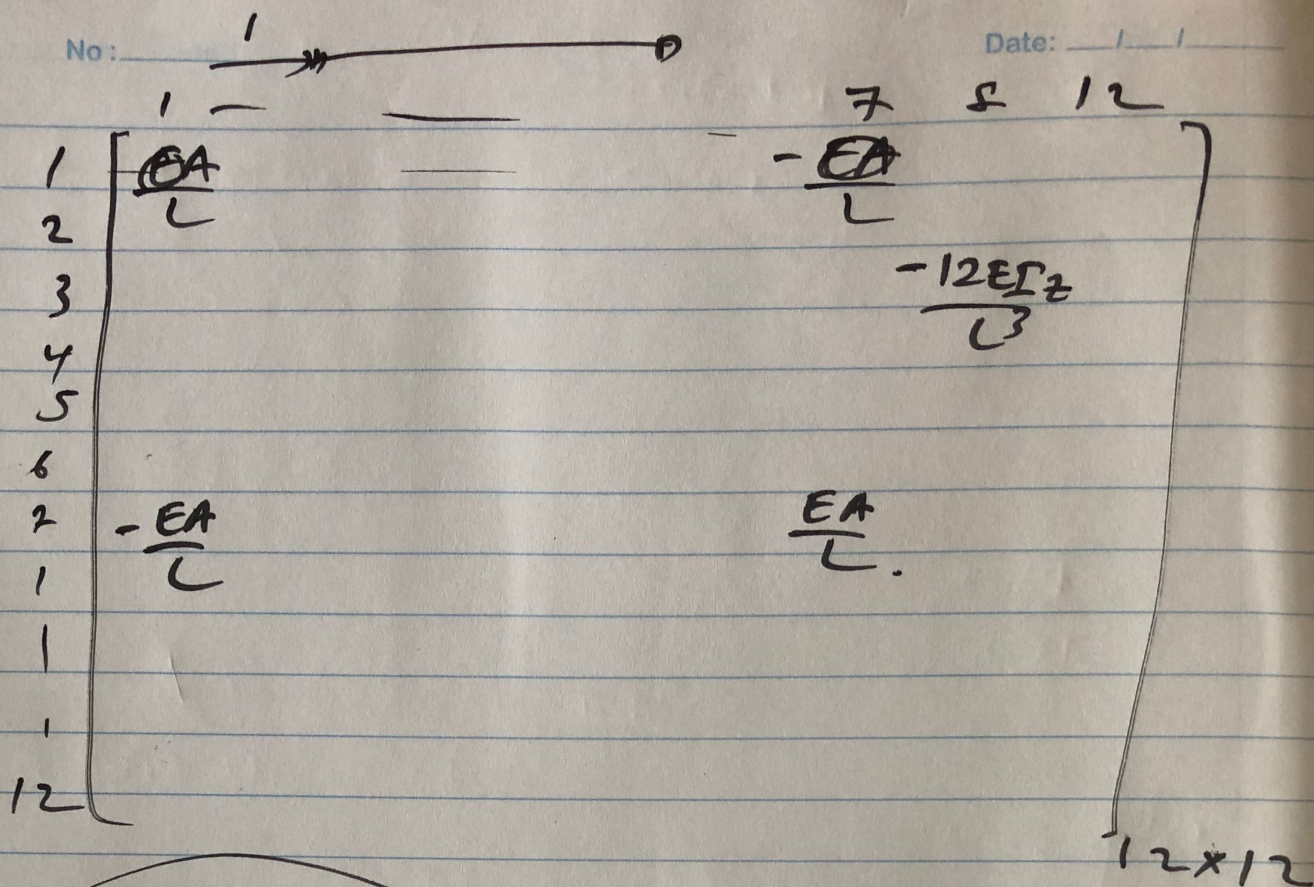 No: 1 Date: / /
1 — 7 8 12
1 EA/L - EA/L
2
3 -12EIz/L³
4
5
6
7 - EA/L EA/L.
1
|
'
12
12x12